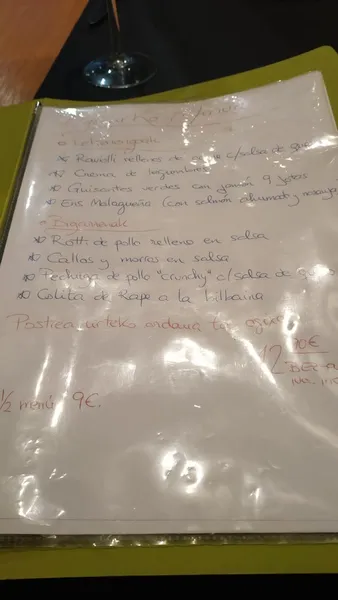 Lehenengoak
* Ravioli rellenos de c/salsa de
* Crema de legumbres
* Guisantes verdes con jamón y
* Ens Malagueña (con salmón ahumado y naranja
Bigarrenak
* Rotti de pollo relleno en salsa
* Callos y morros en salsa
* Pechuga de pollo "crunchy" c/salsa de
* Colita de Rape a la bilbaina
Postrea, urteko ardaua ta
12'70€
BEZ
1/2 menú 9€.